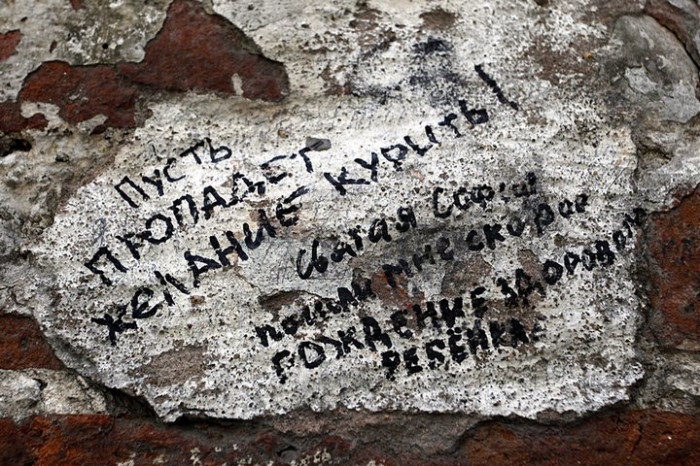 Пусть
ПРОПАДЕТ
ЖЕЛАНИЕ КУРИТЬ!
Святая София
пошли мне скорое
РОЖДЕНИЕ ЗДОРОВОГО
РЕБЁНКА